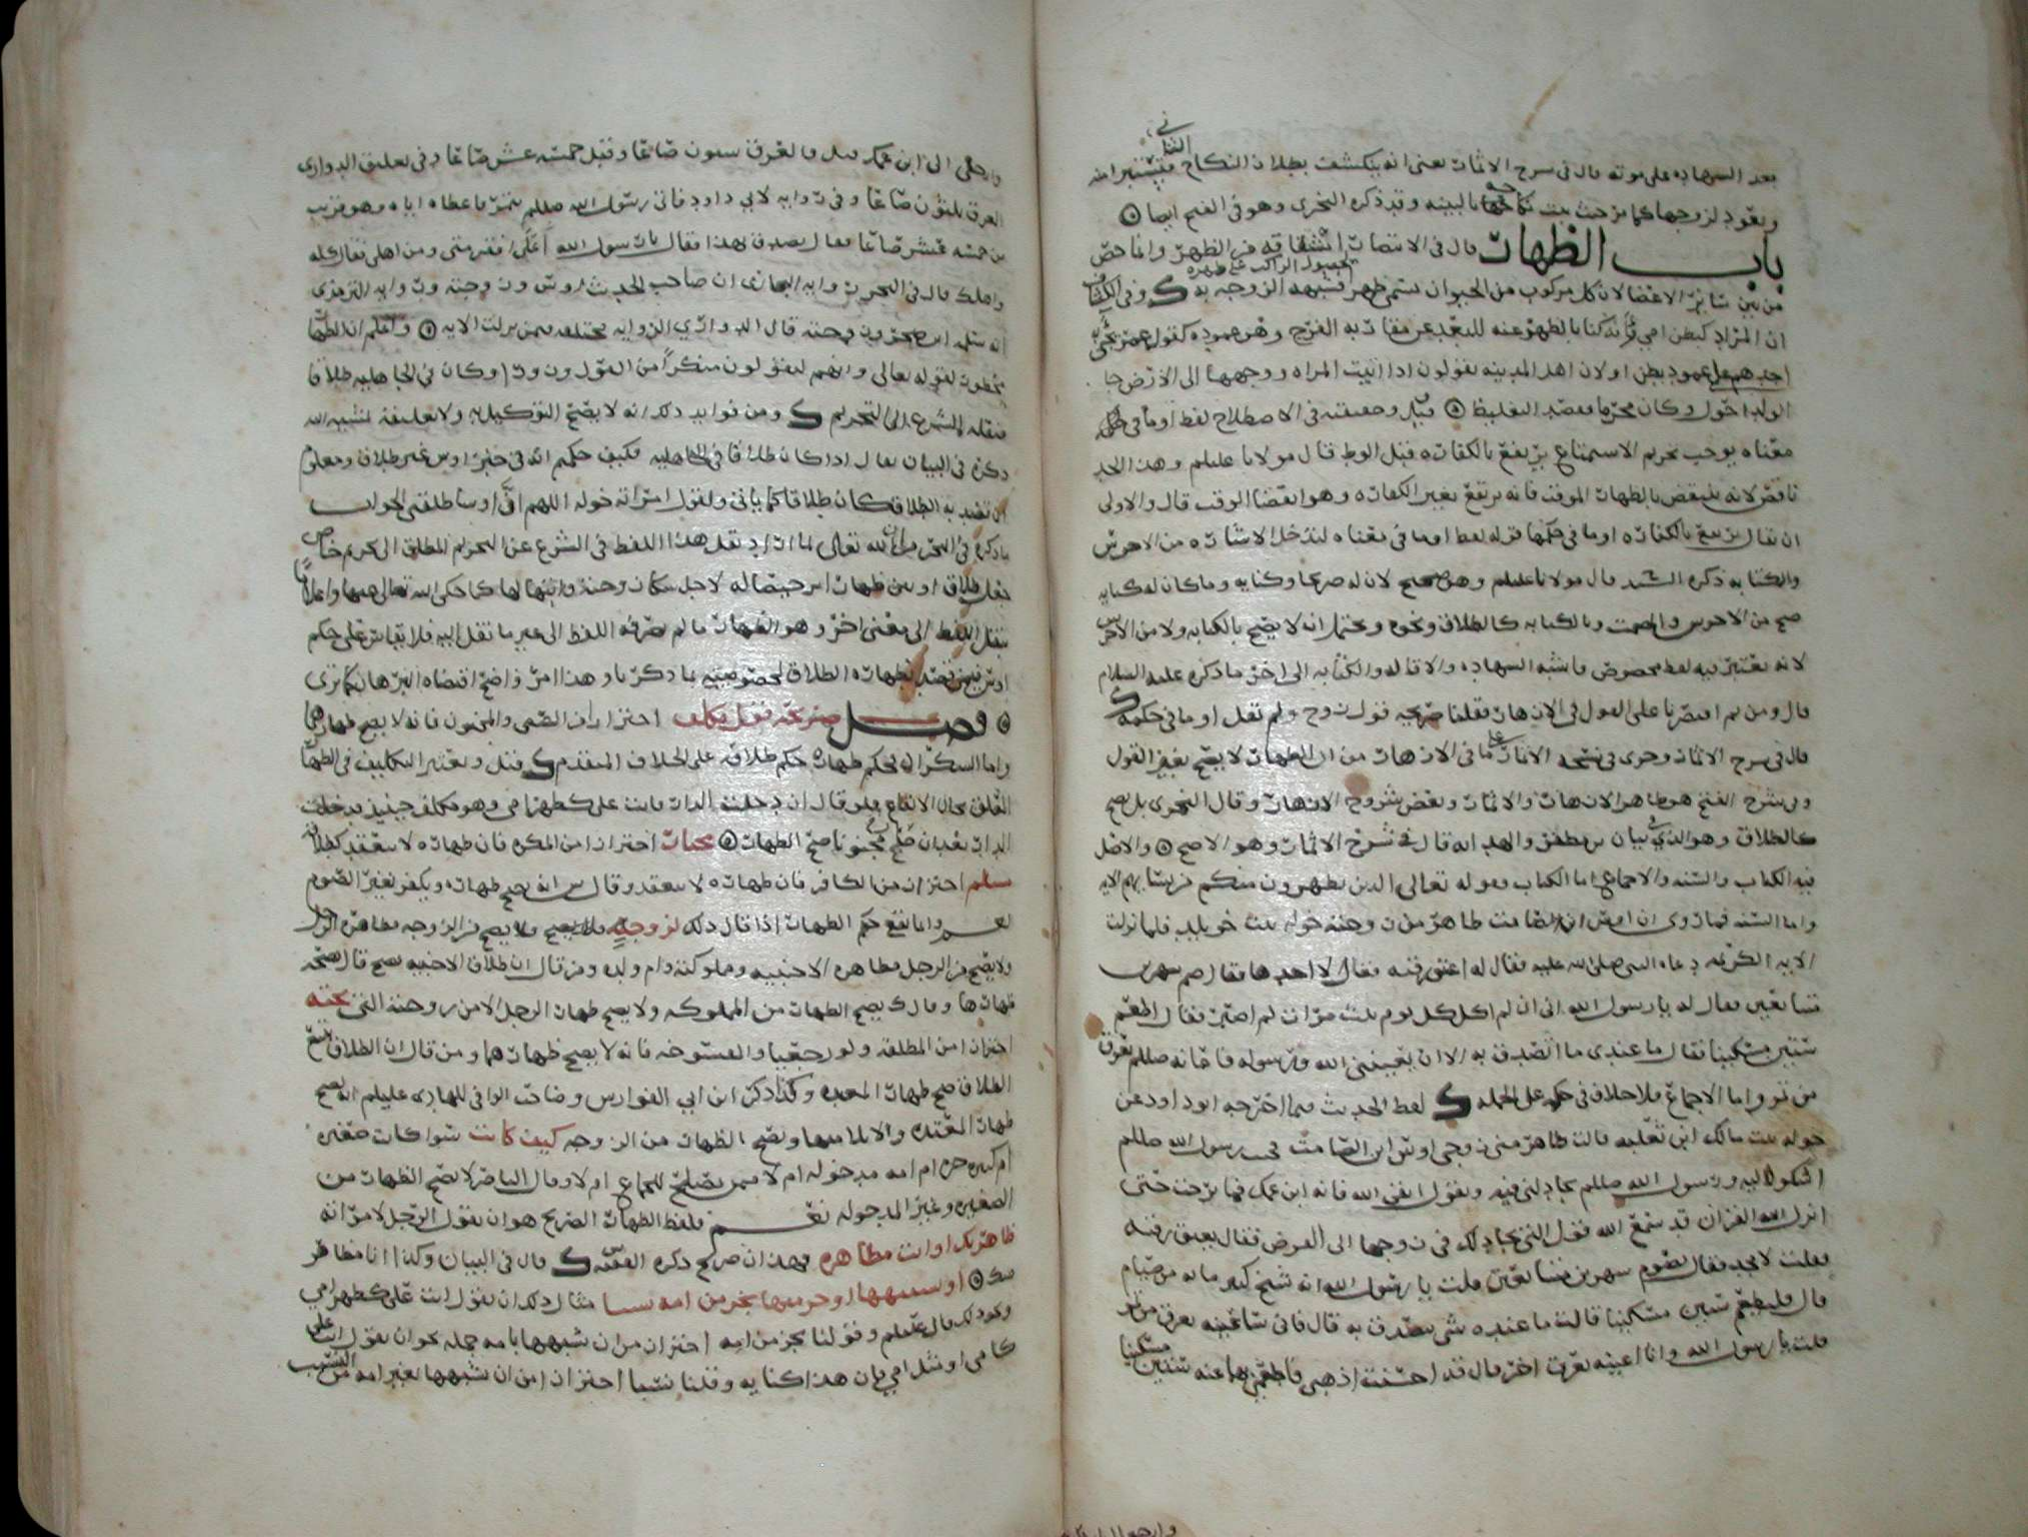 بعد الشهادة على موته قال في شرح الاثمار يعني انه ينكشف بطلان النكاح الثاني فتستبرا منه
ويعود لزوجها كما من حيث بالبينه وقد ذكره النجري وهو في الفتح ايضا
باب الظهار قال في الانتصار اشتقاقه من الظهر وانما خص
لحصول الراكب على ظهره
من بين سائر الاعضا لان كل مركوب من الحيوان يسمى ظهر فشبهه الزوجه به ك وفي الكشاف
ان المراد كبطن امي فانه كنا بالظهر عنه للبعد عن مقاربه الفرج وهو عموده كقول عمر
احدهم على عمود بطن اولان اهل المدينه يقولون اذا اتيت المراه ووجهها الى الارض جا
الولد احول وكان محرما فقصد التغليظ قيل وحقيقته في الاصطلاح لفظ اوما في حكمه
معناه يوجب تحريم الاستمتاع يرتفع بالكفاره قبل الوطء قال مولانا عليلم وهذا الحد
ناقص لانه ينتقض بالظهار الموقت فانه يرتفع بغير الكفاره وهو انقضا الوقت قال والاولى
ان يقال يرتفع بالكفاره اوما في حكمها قوله لفظ اوما في معناه ليدخل الاشاره من الاخرس
والكتابه ذكره السيد قال مولانا عليلم وهو صحيح لان له صريحا وكنايه وما كان له كنايه
صح من الاخرس والمصمت وبالكتابه كالطلاق ونحوه ويحتمل انه لا يصح بالكتابه ولا من الاخرس
لانه يعتبر فيه لفظ مخصوص فاشبه الشهاده والاقاله والكتابه الى اخر ما ذكره عليه السلام
قال ومن ثم اقتصرنا على القول في الازهار فقلنا صريحه قول زوج ولم نقل اوما في حكمه ك
قال في شرح الاثمار وجرى في نسخه الاثمار على ما في الازهار من ان الظهار لا يصح بغير القول
وفي شرح الفتح هو ظاهر الازهار والاثمار وبعض شروح الازهار وقال النجري بل يصح
كالطلاق وهو الذي في بيان بن مظفر والهدايه قال في شرح الاثمار وهو الاصح والاصل
فيه الكتاب والسنه والاجماع اما الكتاب فقوله تعالى الذين يظهرون منكم من نسايهم الايه
واما السنه فما روي ان اوس ابن الصامت ظاهر من زوجته خوله بنت خويلد فلما نزلت
الايه الكريمه دعاه النبي صلى الله عليه فقال له اعتق رقبه فقال لا اجدها فقال صم شهرين
متتابعين فقال له يارسول الله اني ان لم اكل كل يوم ثلث مرات لم اصبر فقال اطعم
ستين مسكينا فقال ما عندي ما اتصدق به الا ان يعينني الله ورسوله فاعانه صللم بعرق
من تمر واما الاجماع فلا خلاف في حكمه على الجمله ك لفظ الحديث فيما اخرجه ابو داود عن
خوله بنت مالك ابن ثعلبه قالت ظاهر مني زوجي اوس ابن الصامت فجيت رسول الله صللم
اشكو اليه ورسول الله صللم يجادلني فيه ويقول اتقي الله فانه ابن عمك فما برحت حتى
انزل الله القران قد سمع الله قول التي تجادلك في زوجها الى الفرض فقال يعتق رقبه
فقلت لا يجد فقال يصوم شهرين متتابعين قلت يا رسول الله انه شيخ كبير ما به من صيام
قال فليطعم ستين مسكينا قالت ما عنده شي يتصدق به قال فاني ساعينه بعرق من تمر
قلت يا رسول الله وانا اعينه بعرق اخر قال قد احسنت اذهبي فاطعمي بها عنه ستين مسكينا
وارجعي الى ابن
وارجعي الى ابن عمك قيل والعرق ستون صاعا وقيل خمسه عشر صاعا وفي تعليق الدواري
العرق ثلثون صاعا وفي روايه لابي داود فاتى رسول الله صللم بتمر فاعطاه اياه وهو قريب
من خمسه عشر صاعا فقال تصدق بهذا فقال يارسول الله اعلى افقر مني ومن اهلي فقال كله
واهلك قال في البحر وروايه البخاري ان صاحب الحديث اوس وزوجته وروايه الترمذي
انه سلمه ابن صخر وزوجته قال الدواري الروايه مختلفه فيمن نزلت الايه واعلم ان الظهار
محظور لقوله تعالى وانهم ليقولون منكرا من القول وزورا وكان في الجاهليه طلاقا
فنقله الشرع الى التحريم ك ومن فوايد ذلك انه لا يصح التوكيل به ولا تعليقه بمشيه الله
ذكره في البيان يقال اذا كان طلاقا في الجاهليه فكيف حكمتم انه في خبر اوس غير طلاق ومعلوم
ان قصد به الطلاق كان طلاقا كما ياتي ولقول امراته خوله اللهم ان اوسا طلقني الجواب
ما ذكره في البحر من ان الله تعالى لما اراد نقل هذا اللفظ في الشرع عن التحريم المطلق الى تحريم خاص
جعل طلاق اوس ظهارا ترخيصا له لاجل شكا زوجته وابتهالها كما حكى الله تعالى عنها واعلاما
بنقل اللفظ الى معنى اخر وهو الظهار ما لم يصرفه اللفظ الى غير ما نقل اليه فلا يقاس على حكم
اوس فيمن قصد بظهاره الطلاق لخصوصيته بما ذكرنا وهذا امر واضح اقتضاه البرهان كما ترى
فصل صريحه قول مكلف احترازا من الصبي والمجنون فانه لا يصح ظهارهما
واما السكران فحكم ظهاره حكم طلاقه على الخلاف المتقدم ك قيل ويعتبر التكليف في الظهار
المعلق بحال الايقاع فلو قال ان دخلت الدار فانت علي كظهر امي وهو مكلف حينيذ فدخلت
الدار بعد ان صار مجنونا صح الظهار مختار احترازا من المكره فان ظهاره لا ينعقد كطلاقه
مسلم احترازا من الكافر فان ظهاره لا ينعقد وقال ش انه يصح ظهاره ويكفر بغير الصوم
نعم وانما يقع حكم الظهار اذا قال ذلك لزوجته فلا يصح ولا يصح من الزوجه مظاهره الرجل
ولا يصح من الرجل مظاهره الاجنبيه ومملوكته وام ولده ومن قال ان طلاق الاجنبيه يصح قال بصحه
ظهارها وقال ك يصح الظهار من المملوكه ولا يصح ظهار الرجل الا من زوجته التي تحته
احترازا من المطلقه ولو رجعيا والمفسوخه فانه لا يصح ظهارهما ومن قال ان الطلاق يتبع
الطلاق صح ظهار المعتده وكذا ذكر ابن ابي الفوارس وصاحب الوافي للهادي عليلم انه يصح
ظهار المعتده والايلا منها ويصح الظهار من الزوجه كيف كانت سوا كانت صغيره
ام كبيره حره ام امه مدخوله ام لا ممن يصلح للجماع ام لا وقال الناصر لا يصح الظهار من
الصغيره وغير المدخوله نعم فلفظ الظهار الصريح هو ان يقول الرجل لامراته
ظاهرتك او انت مظاهره فهذان صريح ذكره الفقيه س ك قال في البيان وكذا انا مظاهر
منك او يشبهها او جزءا منها بجزء من امه نسبا مثال ذلك ان يقول انت علي كظهر امي
ونحو ذلك قال عليلم وقولنا بجزء من امه احترازا من ان يشبهها بامه جمله نحو ان يقول انت علي
كامي او مثل امي فان هذا كنايه وقلنا نسبا احترازا من ان يشبهها بغير امه من النسب